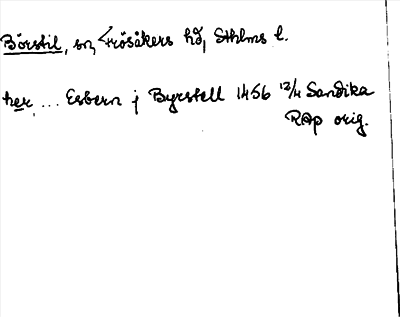 Börstil, sn, Frösåkers hd, Sthlms l.
her ... Esbern j Byrstell 1456 12/4 Sandika
RAp orig.